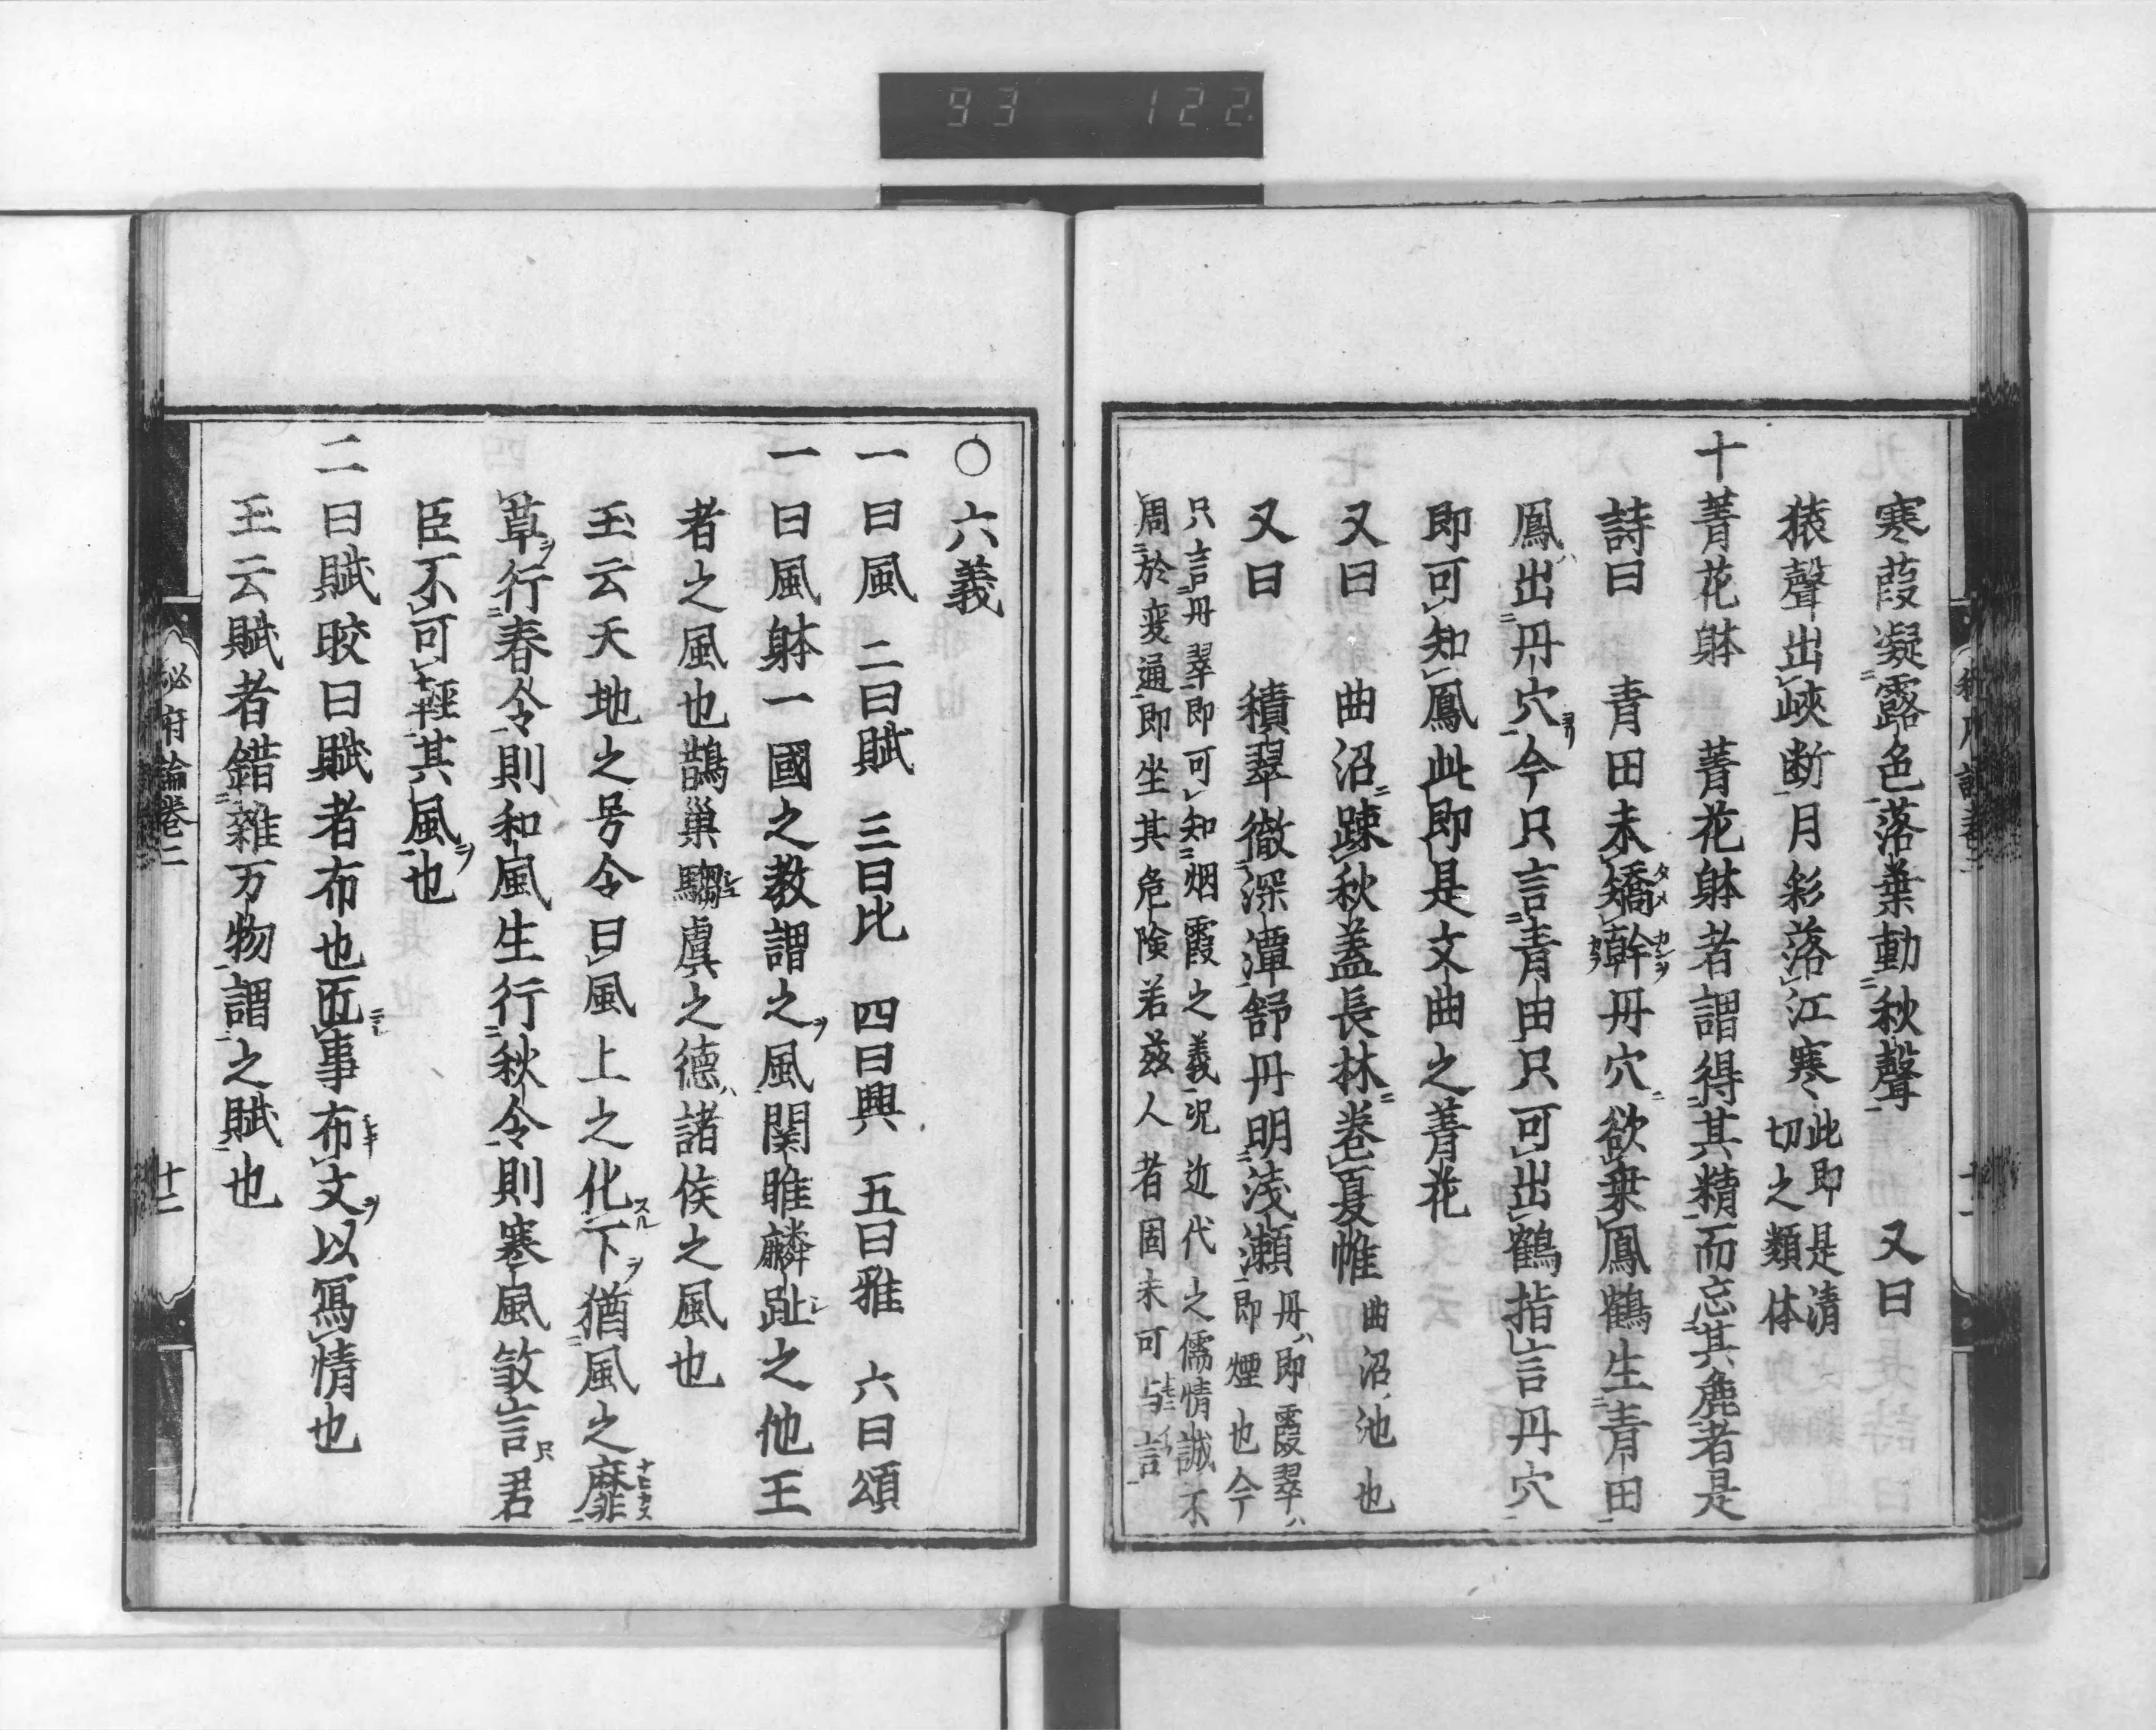 寒葭凝露色落葉動秋聲　又曰
猿聲出峽断月彩落江寒 此即是清
切之類体
十菁花躰　菁花躰者謂得其精而忘其麁者是
詩曰　青田未矯幹丹穴欲乗鳳鶴生青田
鳳出丹穴今只言青田只可出鶴指言丹穴
即可知鳳此即是文曲之菁花
又曰　曲沼踈秋蓋長林卷夏帷 曲沼池也
又曰　積翠徹深潭舒丹明浅瀬 丹ハ即霞翠ハ
即煙也今
只言丹翠即可知烟霞之義况近代之儒情誠不
周於变通即坐其危険若茲人者固未可与言
○六義
一曰風　二曰賦　三曰比　四曰興　五曰雅　六曰頌
一曰風躰一國之教謂之風関雎麟趾之他王
者之風也鵲巢騶虞之德諸侯之風也
王云天地之号令曰風上之化下猶風之靡
草行春令則和風生行秋令則寒風敛言君
臣不可軽其風也
二曰賦晈曰賦者布也匠事布文以寫情也
王云賦者錯雜万物謂之賦也
秘府論卷二　十二
93　122